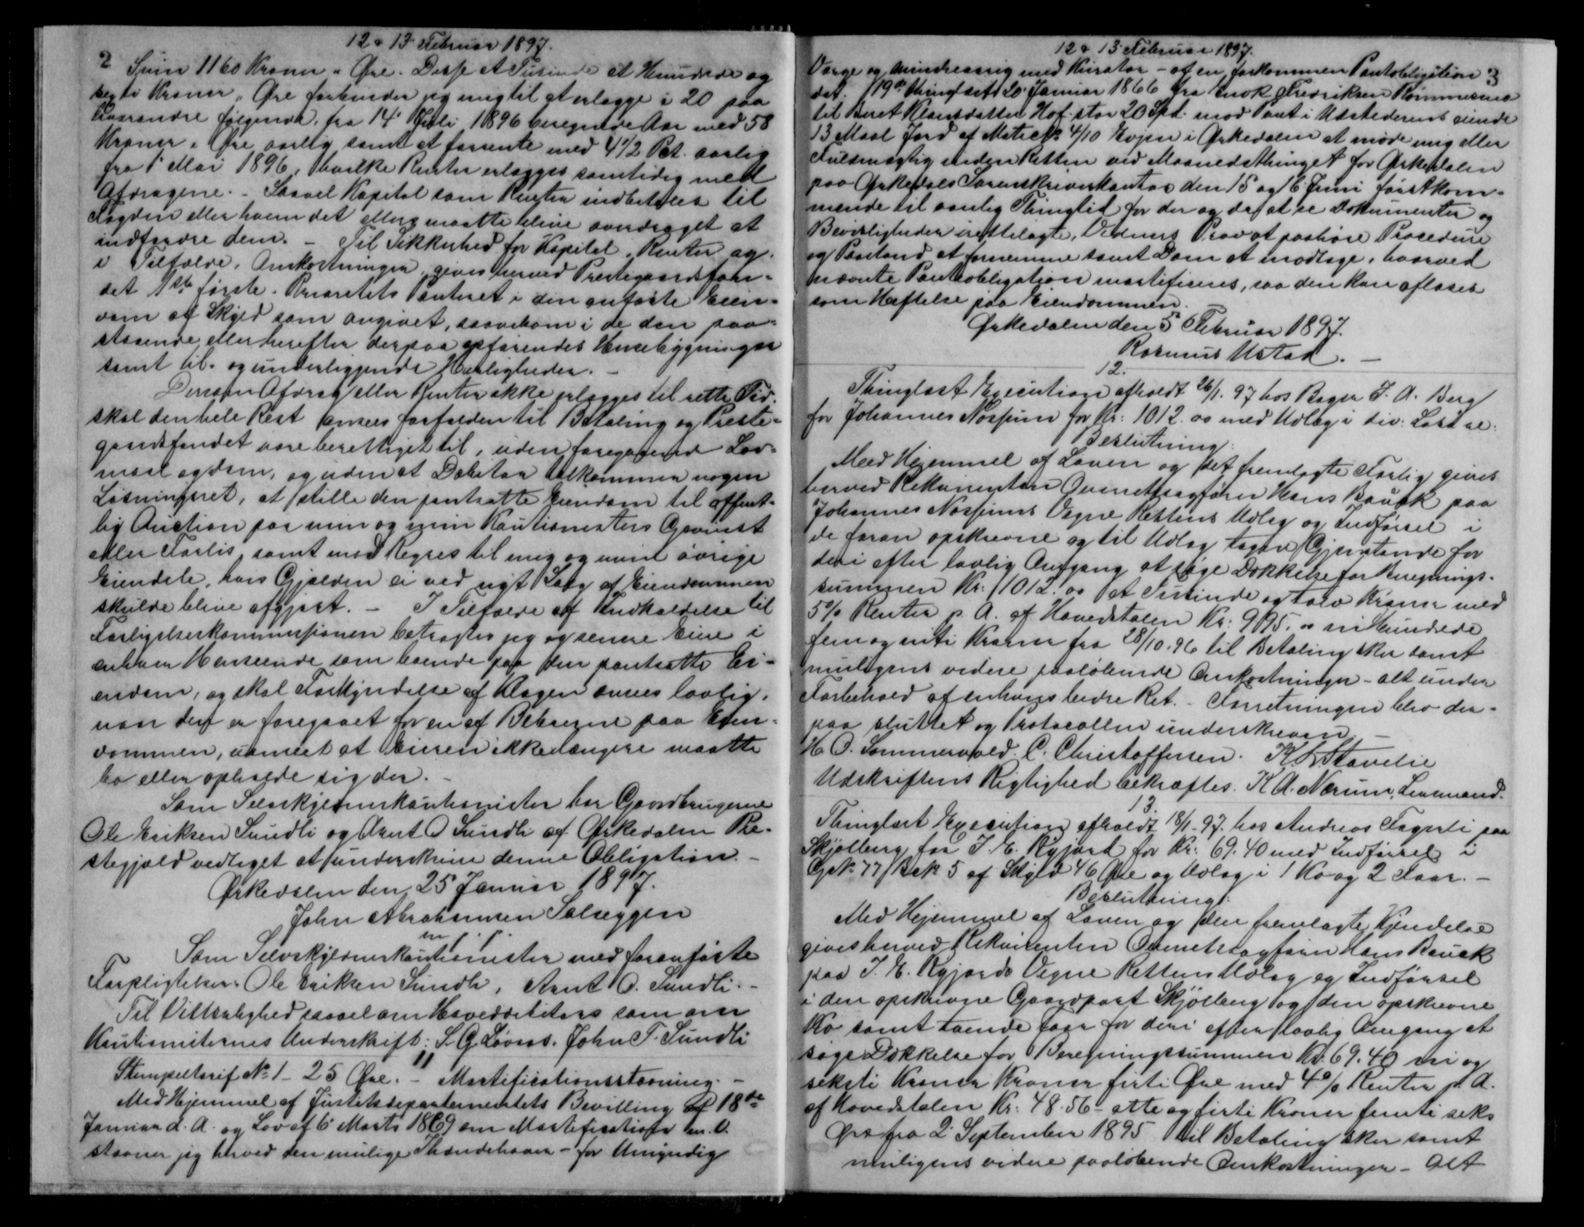 12 & 13 Februar 1897.
2
Svin 1160 Kroner „ Øre. Disse et Tusinde et Hundrede og
seksti Kroner „ Øre forbinder jeg mig til at erlægge i 20 paa
hverandre følgende, fra 14 Juli 1896 beregnede Aar med 58
Kroner „ Øre aarlig samt at forrente med 4½ Pct. aarlig
fra 1 Mai 1896, hvilke Renter erlægges samtidig med
Afdragene. – Saavel Kapital som Renter indbetales til
Fogden eller hvem det ellers maatte blive overdraget at
indfordre dem. – Til Sikkerhed for Kapital, Renter og
i Tilfælde, Omkostninger, gives herved Præstegaardsfon-
det 1ste første Prioritets Panteret i den anførte Eien-
dom af Skyld som angivet, saavelsom i de den paa-
staaende eller herefter derpaa opførendes Husebygninger
samt til- og underliggende Herligheder. –
Dersom Afdrag eller Renter ikke erlægges til rette Tid,
skal den hele Rest ansees forfalden til Betaling og Præste-
gaardsfondet være berettiget til, uden foregaaende Lov-
maal og dom, og uden at Debitor tilkommer nogen
Løsningsret, at stille den pantsatte Eiendom til offent-
lig Auction paa min og mine Kautionisters Gevinst
eller Forlis, samt med Regres til mig og mine øvrige
Eiendele, hvis Gjælden ei ved nyt Salg af Eiendommen
skulde blive afgjort. – I Tilfælde af Indkaldelse til
Forligelseskommissionen betragtes jeg og senere Eiere i
enhver Henseende som boende paa den pantsatte Ei-
endom, og skal Forkyndelse af Klagen ansees lovlig,
naar den er foregaaet for en af Beboerne paa Eien-
dommen, uanseet at Eieren ikke længere maatte
bo eller opholde sig der. –
Som Selvskyldnerkautionister har Gaardbrugerne
Ole Eriksen Sundli og Arnt O Sundli af Ørkedalen Præ-
stegjæld vedtaget at underskrive denne Obligation. –
Ørkedalen den 25 Januar 1897.
John Abrahamsen Solseggen
m. f. P.
Som Selvskyldnerkautionister med foranførte
Forpligtelser. Ole Eriksen Sundli, Arnt O. Sundli. –
Til Vitterlighed saavel om Hoveddebitors som om
Kautionisternes Underskrift: S. G. Løvaas. John T. Sundli
11
Stempeltarif No 1 – 25 Øre. – Mortificationsstævning. –
Med Hjemmel af Justitsdepartementets Bevilling af 18de
Januar d. A. og Lov af 6 Marts 1869 om Mortification m. v.
stævner jeg herved den mulige Ihændehaver – for Umyndig
12 & 13 Februar 1897.
3
Værge og mindreaarig med Kurator – af en forkommen Pantobligation
dat. 19de thinglæst 20 Januar 1866 fra Enok Fredriksen Rømmesmo
til Beret Klausdatter Hof stor 20 Spd. mod Pant i Udstederens eiende
13 Maal Jord af Matr. No 4/10 Evjen i Ørkedalen at møde mig eller
Fuldmægtig inden Retten ved Maanedsthinget for Ørkedalen
paa Ørkedals Sorenskriverkontor den 15 og 16 Juni førstkom-
mende til vanlig Thingtid for der og da at se Dokumenter og
Bevisligheder irettelagte, Vidners Prov at paahøre Procedure
og Paastand at fornemme samt Dom at modtage, hvorved
nævnte Pantobligation mortificeres, saa den kan aflæses
som Hæftelse paa Eiendommen.
Ørkedalen den 5 Februar 1897.
Rasmus Ustad. –
12.
Thinglæst Execution afholdt 26/1. 97 hos Bager J. A. Berg
for Johannes Nospun for Kr: 1012. oo med Udlæg i div: Løsøre:
Beslutning:
Med Hjemmel af Loven og det fremlagte Forlig gives
herved Rekvirenten Overretssagfører Hans Bauck paa
Johannes Nospuns Vegne Rettens Udlæg og Indførsel i
de foran opskrevne og til Udlæg tagne Gjenstande for
deri efter lovlig Omgang at søge Dækkelse for Beregnings-
summen Kr. 1012. oo et Tusinde og tolv Kroner med
5% Renter p. A. af Hovedstolen Kr: 995. oo ni Hundrede
fem og niti Kroner fra 28/10. 96 til Betaling sker samt
muligens videre paaløbende Omkostninger – alt under
Forbehold af enhvers bedre Ret. – Forretningen blev der-
paa sluttet og Protocollen underskreven –
H O. Sommervold. C. Christoffersen. K. L. Stavelie
Udskriftens Rigtighed bekræftes. K A. Nerum, Lensmand.
13.
Thinglæst Execution afholdt 18/1–97. hos Andreas Fagerli paa
Skjølberg for J. E. Ryjord for Kr. 69.40 med Indførsel i
Gno 77 Bno 5 af Skyld 46 Øre og Udlæg i 1 Ko og 2 Faar. –
Beslutning:
Med Hjemmel af Loven og den fremlagte Kjendelse
gives herved Rekvirenten Overretssagfører Hans Bauck
paa J. E. Ryjords Vegne Rettens Udlæg og Indførsel
i den opskrevne Gaardpart Skjølberg og den opskrevne
Ko samt tvende Faar for deri efter lovlig Omgang at
søge Dækkelse for Beregningssummen Kr. 69.40 ni og
seksti Kroner Kroner firti Øre med 4% Renter p. A.
af Hovedstolen Kr: 48.56 – otte og firti Kroner femti seks
Øre fra 2 September 1895 til Betaling sker samt
muligens videre paaløbende Omkostninger – Alt